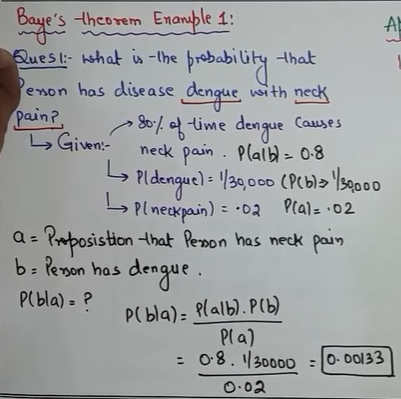 Baye's theorem Example 1:
Ques1:- what is the probability that
Person has disease dengue with neck
pain?
Given:- → 80% of time dengue causes
neck pain. P(a|b) = 0.8
→ P(dengue) = 1/30,000 (P(b) ⇒ 1/30,000
→ P(neckpain) = .02 P(a) = .02
a = Proposistion that Person has neck pain
b = Person has dengue.
P(b|a) = ?
P(b|a) = P(a|b). P(b)
P(a)
= 0.8 . 1/30000 = 0.00133
0.02